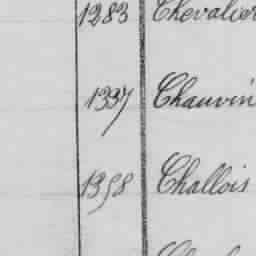 1283 Chevalier
1337 Chauvin
1358 Challois